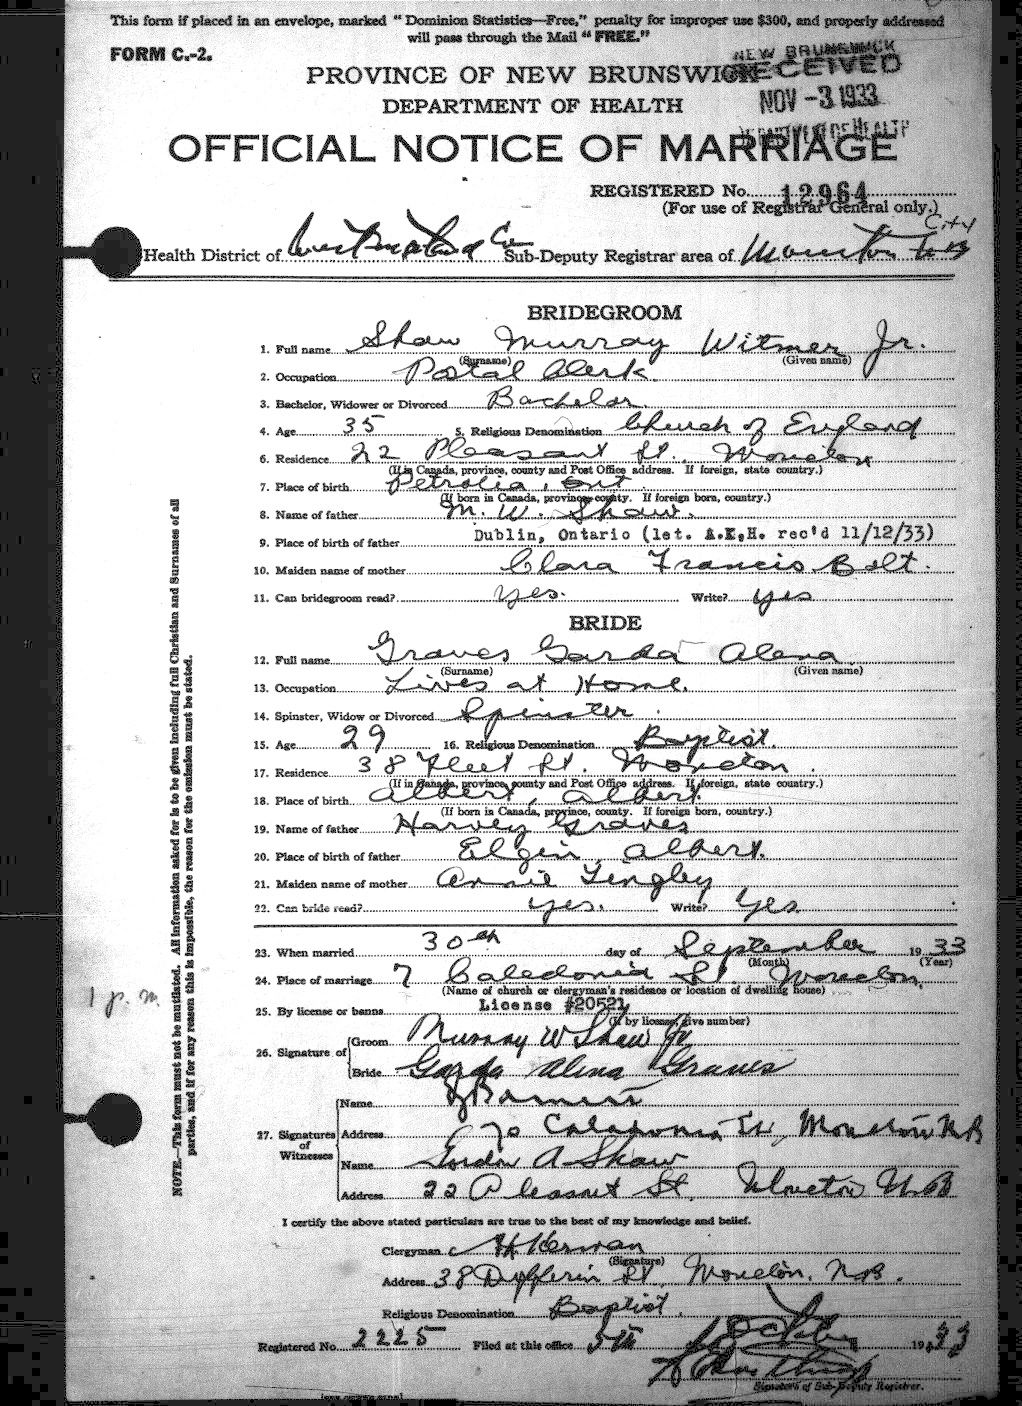 This form if placed in an envelope, marked "Dominion Statistics—Free," penalty for improper use $300, and properly addressed
will pass through the Mail "FREE."
FORM C.-2.
PROVINCE OF NEW BRUNSWICK
NEW BRUNSWICK
RECEIVED
NOV -3 1933
DEPARTMENT OF HEALTH
DEPARTMENT OF HEALTH
OFFICIAL NOTICE OF MARRIAGE
REGISTERED No. 12964
(For use of Registrar General only.)
City
Health District of Westmorland Co Sub-Deputy Registrar area of Moncton
BRIDEGROOM
1. Full name Shaw Murray Witmer Jr.
(Surname) (Given name)
2. Occupation Postal Clerk.
3. Bachelor, Widower or Divorced Bachelor
4. Age 35 5. Religious Denomination Church of England
6. Residence 22 Pleasant St. Moncton
(If in Canada, province, county and Post Office address. If foreign, state country.)
7. Place of birth Petrolia, Ont
(If born in Canada, province, county. If foreign born, country.)
8. Name of father M. W. Shaw.
9. Place of birth of father Dublin, Ontario (let. A.K.H. rec'd 11/12/33)
10. Maiden name of mother Clara Francis Bolt.
11. Can bridegroom read? yes. Write? yes
BRIDE
12. Full name Graves Garda Alena
(Surname) (Given name)
13. Occupation Lives at Home.
14. Spinster, Widow or Divorced Spinster.
15. Age 29 16. Religious Denomination Baptist.
17. Residence 38 Fleet St. Moncton.
(If in Canada, province, county and Post Office address. If foreign, state country.)
18. Place of birth Albert, Albert.
(If born in Canada, province, county. If foreign born, country.)
19. Name of father Harvey Graves
20. Place of birth of father Elgin, Albert.
21. Maiden name of mother Annie Tingley
22. Can bride read? yes. Write? Yes
23. When married 30th day of September 1933
(Month) (Year)
24. Place of marriage 7 Caledonia St. Moncton.
(Name of church or clergyman's residence or location of dwelling house)
1 p. m.
25. By license or banns License #20521
(If by license, give number)
26. Signature of
Groom Murray W Shaw Jr
Bride Garda Alena Graves
27. Signatures of Witnesses
Name
Address Caledonia St., Moncton N.B
Name Gordon A Shaw
Address 22 Pleasant St. Moncton N.B
I certify the above stated particulars are true to the best of my knowledge and belief.
Clergyman
(Signature)
Address 38 Dufferin St. Moncton. N.B.
Religious Denomination Baptist.
Registered No. 2225 Filed at this office 5th October 1933
Signature of Sub-Deputy Registrar.
NOTE.—This form must not be mutilated. All information asked for is to be given including full Christian and Surnames of all
parties, and if for any reason this is impossible, the reason for the omission must be stated.